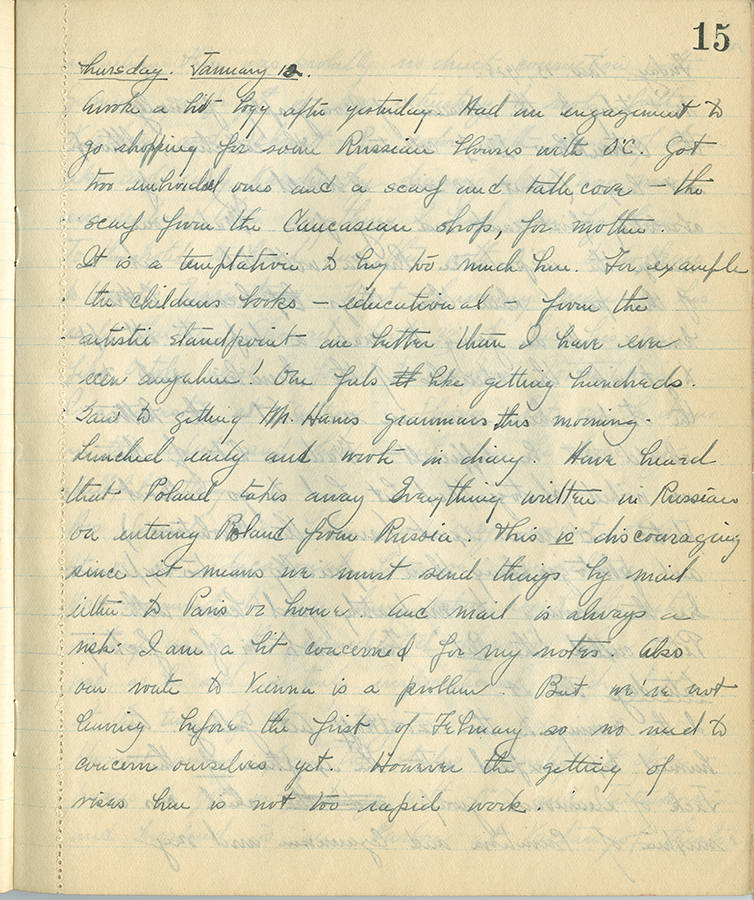 15
Thursday. January 12.
Awoke a bit logy after yesterday. Had an engagement to
go shopping for some Russian blouses with O'C. Got
two embroided ones and a scarf and table cover – the
scarf from the Caucasian shop, for mother.
It is a temptation to buy too much here. For example
the childrens books – educational – from the
artistic standpoint are better than I have ever
seen anywhere! One feels like getting hundreds.
to getting Mr. grammars this morning.
Lunched early and wrote in diary. Have heard
that Poland takes away everything written in Russian
on entering Poland from Russia. This is discouraging
since it means we must send things by mail
either to Paris or home. And mail is always a
risk. I am a bit concerned for my notes. Also
our route to Vienna is a problem. But we're not
leaving before the first of February so no need to
concern ourselves yet. However the getting of
visas here is not too rapid work.